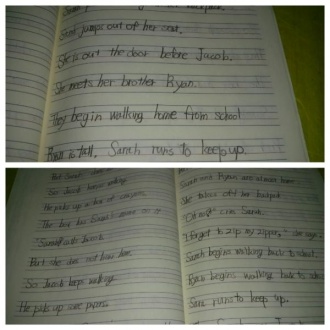 Sarah jumps out of her seat.
She is out the door before Jacob.
She meets her brother Ryan.
They begin walking home from school
Ryan is tall. Sarah runs to keep up.
But Sarah does not
So Jacob keeps walking.
He picks up a box of crayons.
The box has Sarah's name on it
"Sarah!" calls Jacob.
But she does not hear him.
So Jacob keeps walking.
He picks up some papers.
Sarah and Ryan are almost home.
She takes off her backpack
"Oh no!" cries Sarah.
I forgot to zip my zipper," she says.
Sarah begins walking back to school.
Ryan begins walking back to
Sarah runs to keep up.